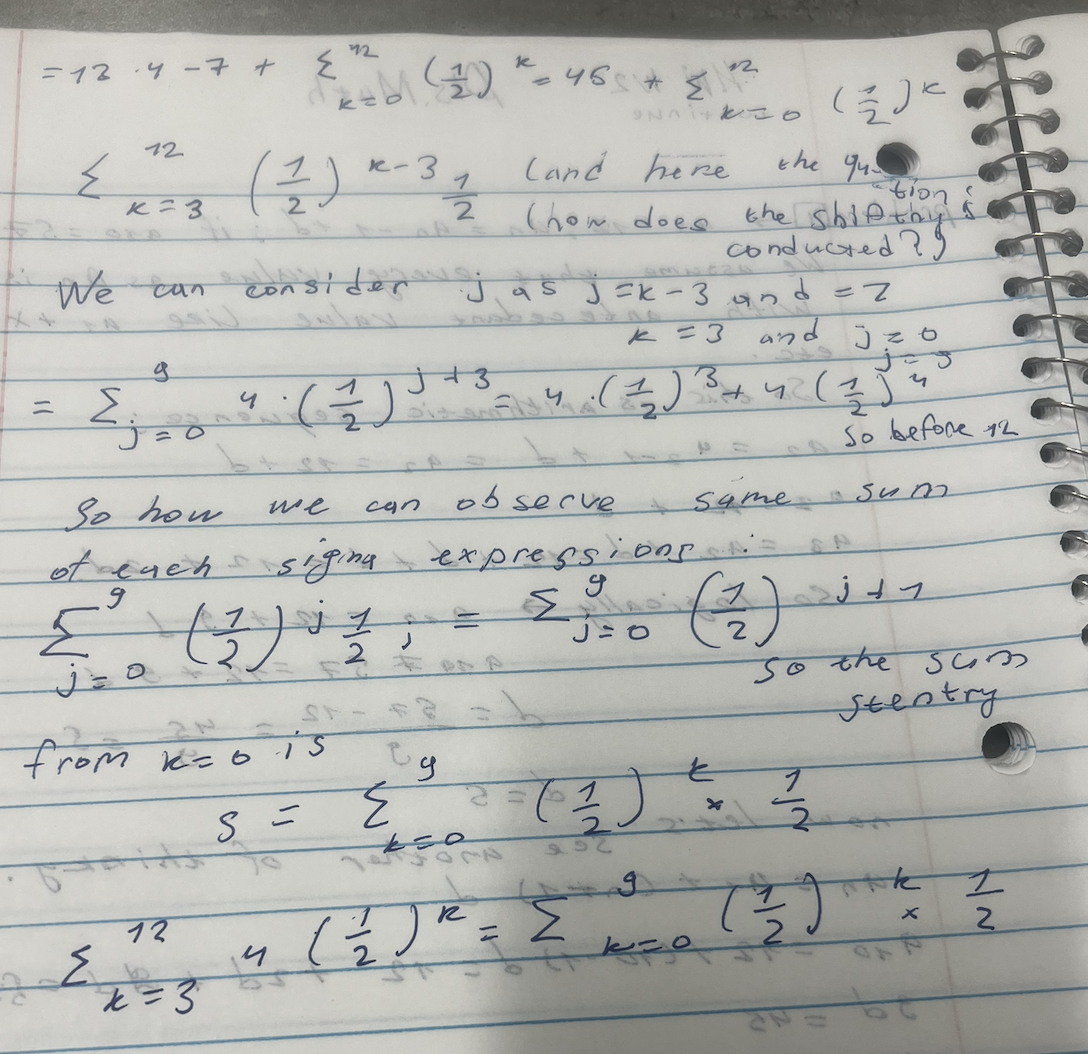 = 12 · 4 - 7 + Σ^12_k=0 (1/2)^k = 45 + Σ^12_k=0 (1/2)^k
Σ^12_k=3 (1/2)^k-3 1/2 (and here the
tion is
(how does the shifthy
conducted?)
We can consider j as j = k-3 and = 2
k = 3 and j = 0
j = 9
= Σ^9_j=0 4 · (1/2)^j+3 = 4 · (1/2)^3 + 4 (1/2)^4
so before 12
So how we can observe same sum
of each sigma expressions :
Σ^9_j=0 (1/2)^j 1/2 ; = Σ^9_j=0 (1/2)^j+1
so the sum
from k = 0 is
S = Σ^9_k=0 (1/2)^k × 1/2
Σ^12_k=3 4 (1/2)^k = Σ^9_k=0 (1/2)^k × 1/2